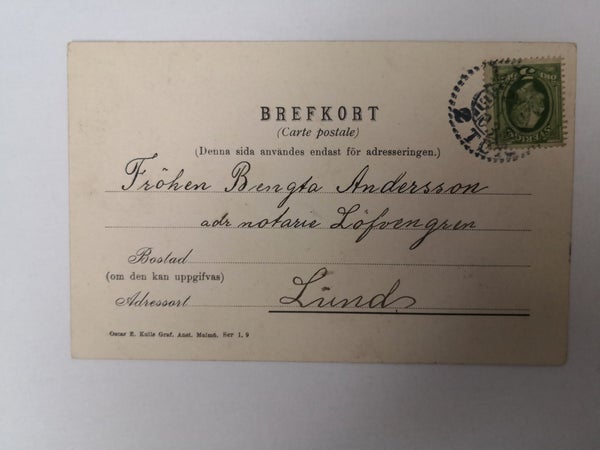 BREFKORT
(Carte postale)
(Denna sida användes endast för adresseringen.)
Fröken Bengta Andersson
adr notarie Löfvengren
Bostad
(om den kan uppgifvas)
Adressort Lund
Oscar E. Kulls Graf. Anst. Malmö. Ser 1. 9
SVERIGE
5